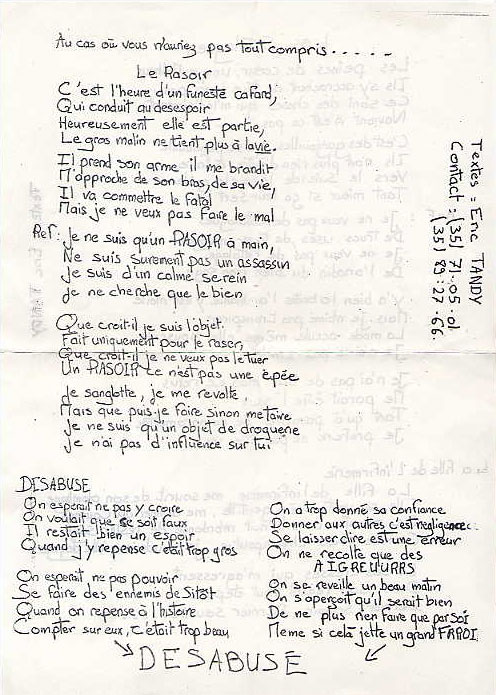 Au cas où vous n'auriez pas tout compris.....
Le Rasoir
C'est l'heure d'un funeste cafard,
Qui conduit au desespoir
Heureusement elle est partie,
Le gros malin ne tient plus à la vie.
Il prend son arme il me brandit
M'approche de son bras, de sa vie,
Il va commettre le fatal
Mais je ne veux pas faire le mal
Ref: Je ne suis qu'un RASOIR à main,
Ne suis surement pas un assassin
Je suis d'un calme serein
Je ne cherche que le bien
Que croit-il je suis l'objet
Fait uniquement pour le raser,
Que croit-il je ne veux pas le tuer
Un RASOIR ce n'est pas une épée
Je sanglotte, je me revolte,
Mais que puis-je faire sinon me taire
Je ne suis qu'un objet de droguerie
Je n'ai pas d'influence sur lui
Textes = Eric TANDY
Contact : (35) 71.05.01.
(35) 89.27.66.
DESABUSE
On esperait ne pas y croire
On voulait que ce soit faux
Il restait bien un espoir
Quand j'y repense c'était trop gros
On esperait ne pas pouvoir
Se faire des ennemis de sitôt
Quand on repense à l'histoire
Compter sur eux, c'était trop beau
On a trop donné sa confiance
Donner aux autres c'est négligence.
Se laisser dire est une erreur
On ne recolte que des
AIGREUURRS
On se reveille un beau matin
On s'aperçoit qu'il serait bien
De ne plus rien faire que par soi
Meme si celà jette un grand FRROI.
DESABUSE